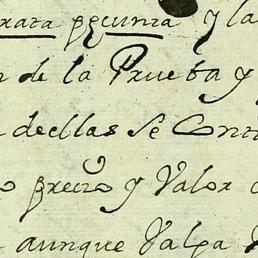 rata pecunia y la
de la Prueba y
deellas Se Cont
precio y Valor
aunque Valga